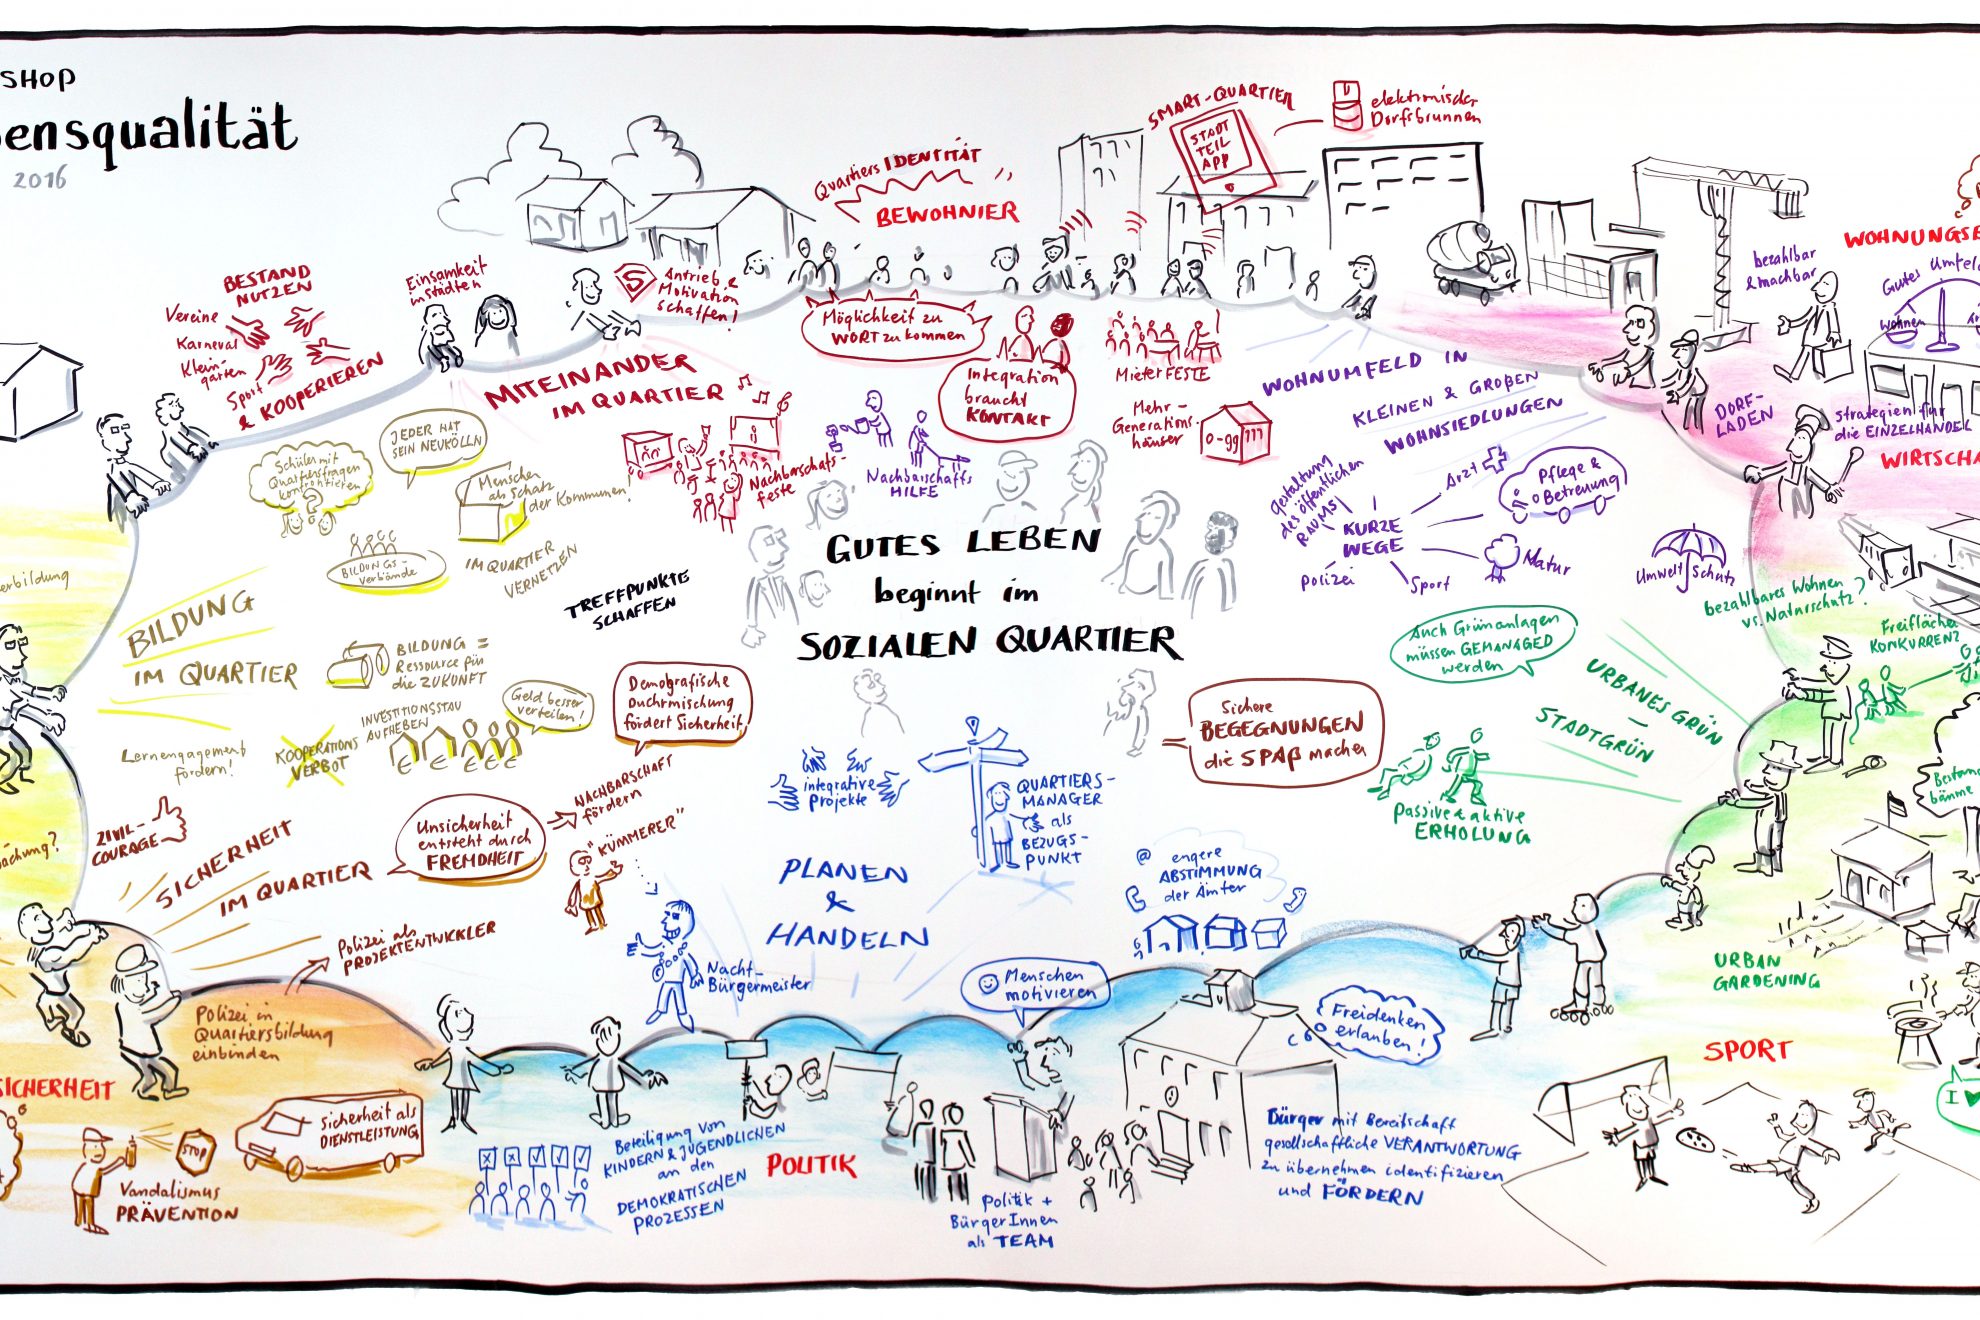 SHOP
ensqualität
2016
BESTAND
NUTZEN
Vereine
Karneval
Klein-
gärten
Sport
& KOOPERIEREN
Einsamkeit
in städten
S
Antrieb &
Motivation
schaffen!
MITEINANDER
IM QUARTIER
Quartiers IDENTITÄT
BEWOHNIER
Möglichkeit zu
WORT zu kommen
Integration
braucht
KONTAKT
Mieter FESTE
Mehr-
Generations-
häuser
Nachbarschafts-
feste
Nachbarschafts
HILFE
SMART-QUARTIER
STADT
TEIL
APP
elektronischer
Dorfsbrunnen
WOHNUMFELD IN
KLEINEN & GROßEN
WOHNSIEDLUNGEN
gestaltung
des öffentlichen
RAUMS
KURZE
WEGE
Arzt
Pflege &
Betreuung
Natur
Sport
Polizei
Umwelt Schutz
bezahlbar
& machbar
WOHNUNGS
Gutes Umfeld
Wohnen
DORF-
LADEN
strategien für
die EINZELHANDEL
WIRTSCHA
JEDER HAT
SEIN NEUKÖLLN
Schüler mit
Quartiersfragen
konfrontieren
?
Menschen
als Schatz
der Kommunen!
BILDUNGS-
verbände
IM QUARTIER
VERNETZEN
TREFFPUNKTE
SCHAFFEN
erbildung
BILDUNG
IM QUARTIER
BILDUNG =
Ressource für
die ZUKUNFT
INVESTITIONSSTAU
AUFHEBEN
Geld besser
verteilen!
Lernengagement
fördern!
KOOPERATIONS
VERBOT
GUTES LEBEN
beginnt im
SOZIALEN QUARTIER
bezahlbares Wohnen
vs. Naturschutz?
Freifläche
KONKURRENZ
Auch Grünanlagen
müssen GEMANAGED
werden
URBANES GRÜN
—
STADTGRÜN
passive & aktive
ERHOLUNG
bäume
URBAN
GARDENING
I
SPORT
Sichere
BEGEGNUNGEN
die SPAß machen
Demografische
Duchrmischung
fördert Sicherheit
NACHBARSCHAFT
fördern
"KÜMMERER"
Unsicherheit
entsteht durch
FREMDHEIT
ZIVIL-
COURAGE
SICHERHEIT
IM QUARTIER
Polizei als
PROJEKTENTWICKLER
Polizei in
Quartiersbildung
einbinden
SICHERHEIT
STOP
Vandalismus
PRÄVENTION
Sicherheit als
DIENSTLEISTUNG
integrative
Projekte
QUARTIERS-
MANAGER
als
BEZUGS-
PUNKT
PLANEN
&
HANDELN
@ engere
ABSTIMMUNG
der Ämter
Nacht-
Bürgermeister
Menschen
motivieren
Freidenken
erlauben!
Beteiligung von
KINDERN & JUGENDLICHEN
an den
DEMOKRATISCHEN
PROZESSEN
POLITIK
Politik +
BürgerInnen
als TEAM
Bürger mit Bereitschaft
gesellschaftliche VERANTWORTUNG
zu übernehmen identifizieren
und FÖRDERN